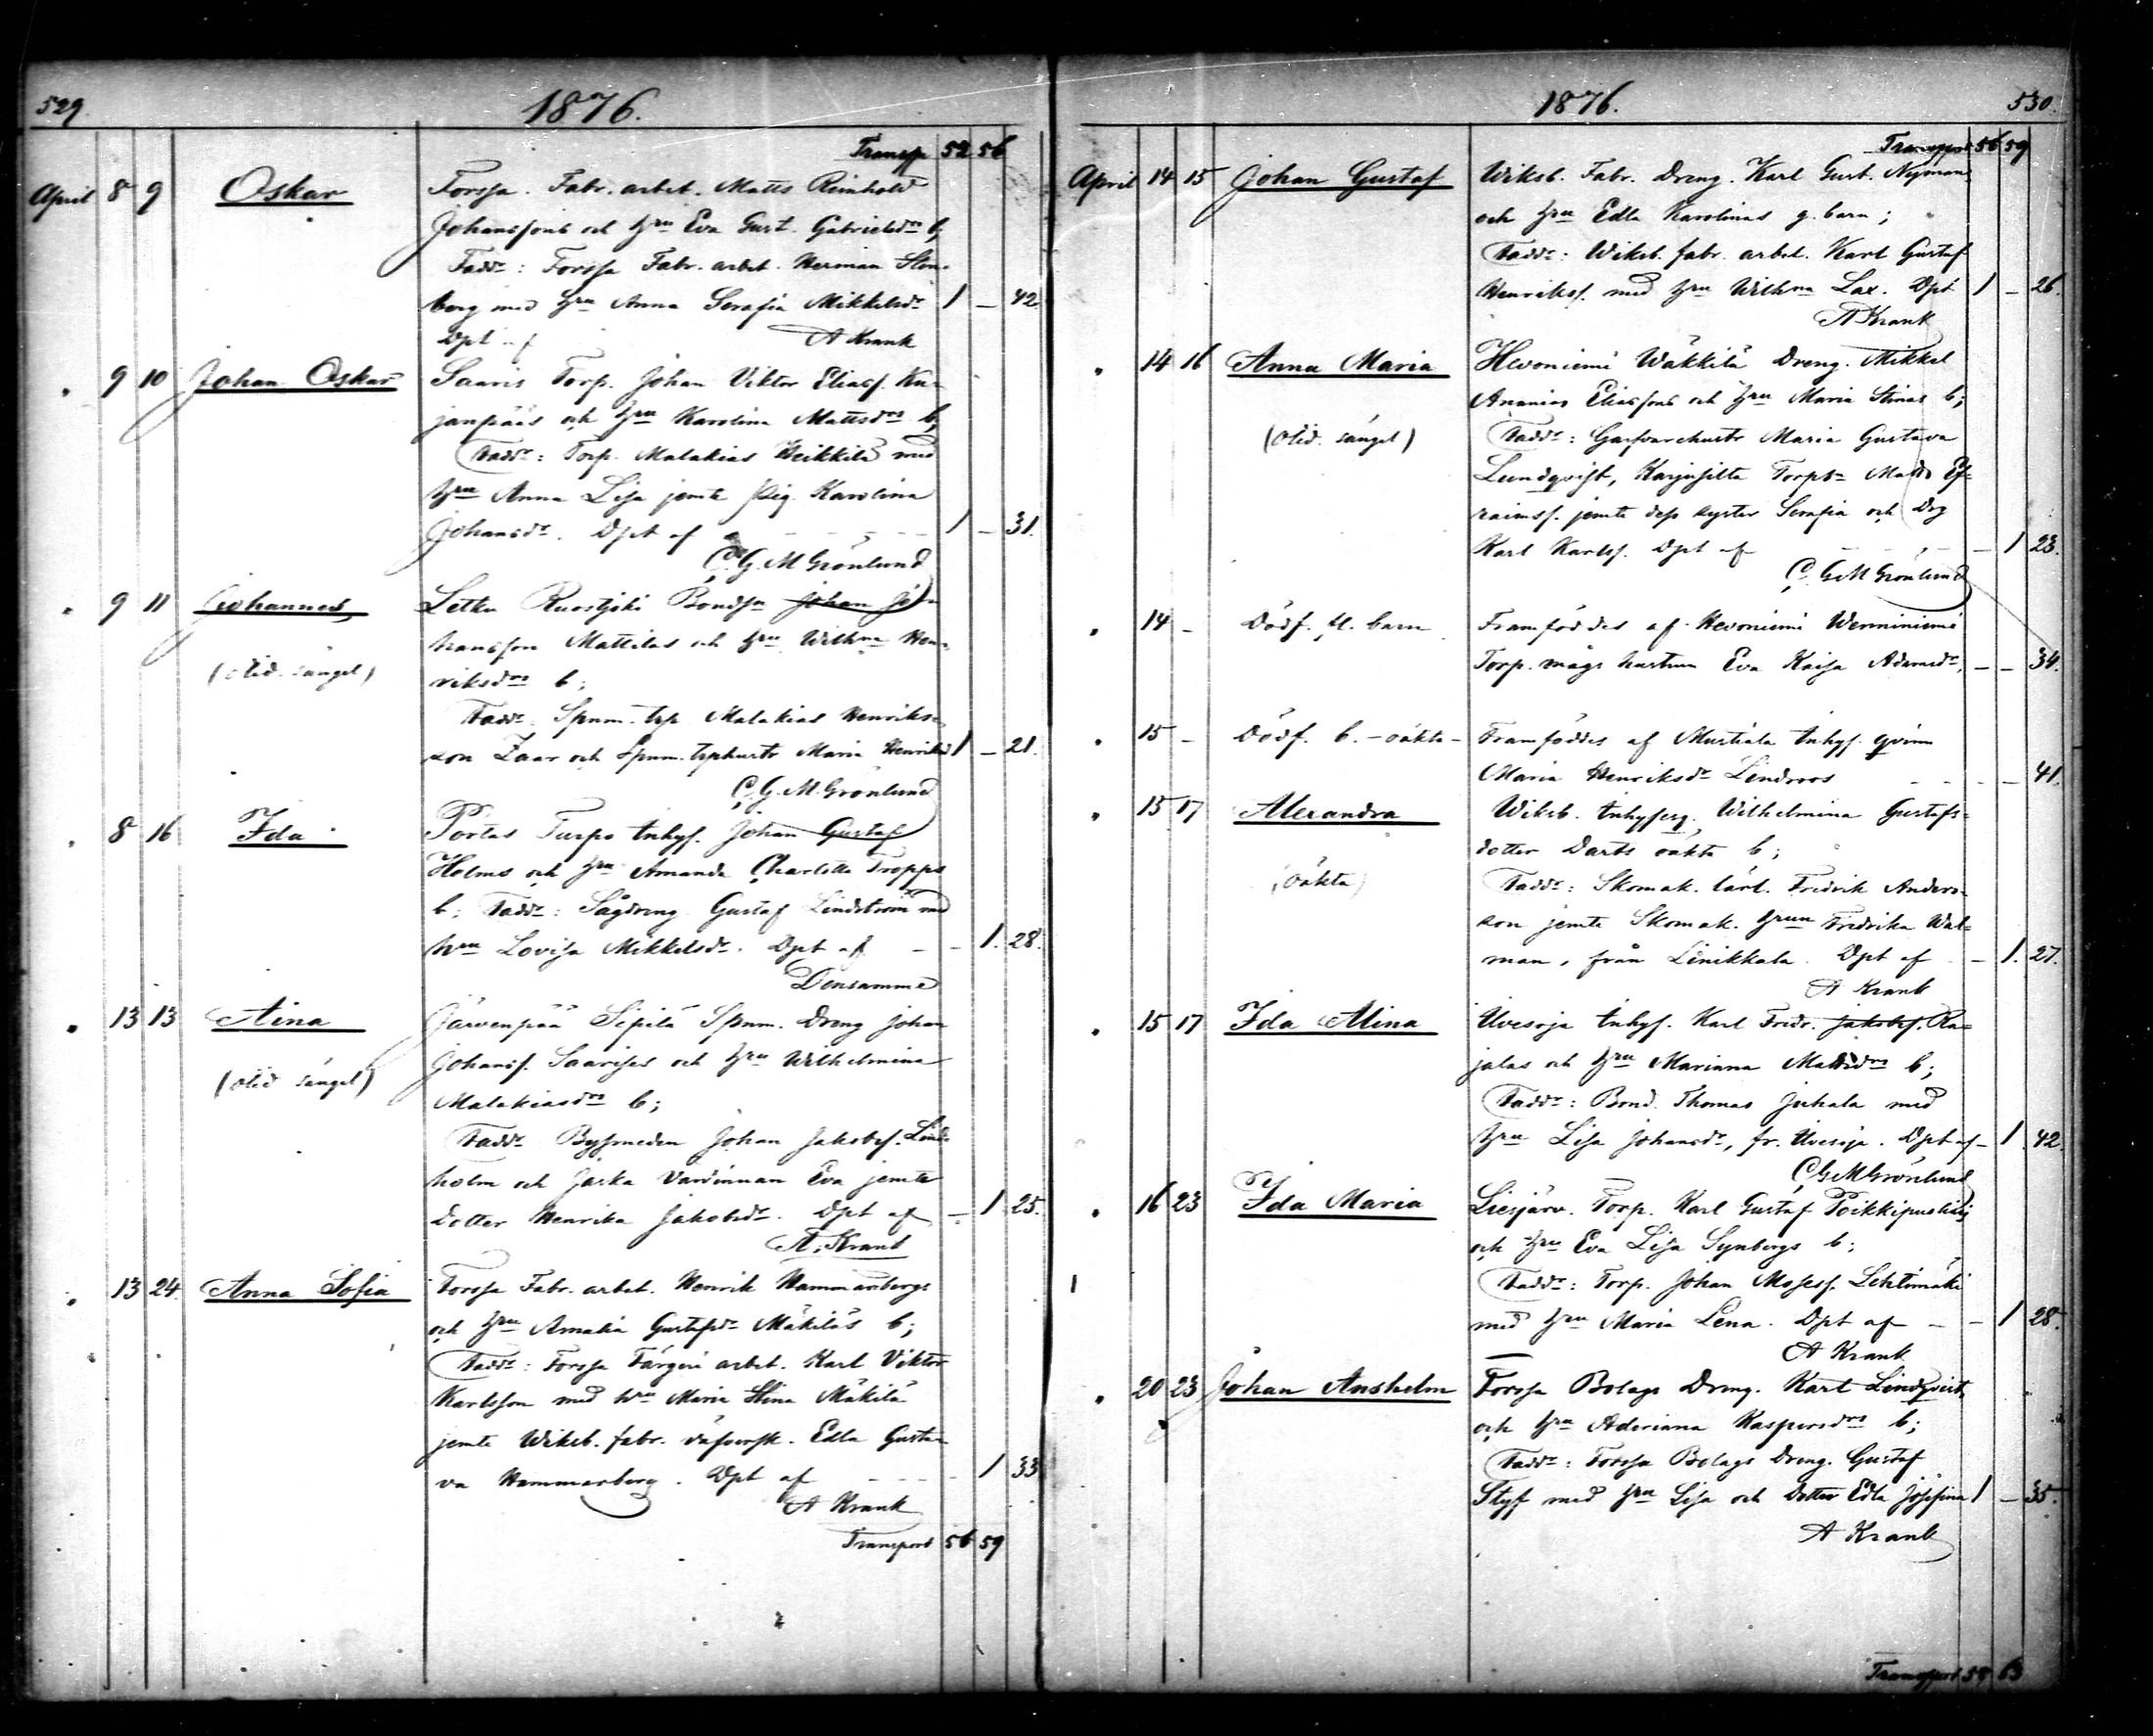 529.
1876.
Transp 52 56
April 8 9 Oskar Forssa. Fabr. arbet. Matts Reinhold
Johanssons och hru Eva Gust. Gabrielsdrs b;
Faddr: Forssa Fabr. arbet. Herman Sten-
berg med hru Anna Serafia Mikkelsdr 1 – 42.
Dpt af A Krank
" 9 10 Johan Oskar Saaris Torp. Johan Viktor Eliasf. Ku-
janpääs och hru Karolina Mattsdrs b;
Faddr: Torp. Malakias Heikkilä med
hru Anna Lisa jemte Pig. Karolina
Johansdr. Dpt af 1 – 31.
C. G. M Grönlund
" 9 11 Johannes Letku Ruostjoki Bondsn Johan Jo-
hansson Mattilas och hru Wilhna Hen-
(otid. sängel) riksdrs b;
Faddr. Spnm. trp Malakias Henriks-
son Zaar och Spnm. trphustr Maria Henriksd 1 – 21.
C. G. M. Grönlund
" 8 16 Ida Portas Turpo Inhys. Johan Gustaf
Holms och hru Amanda Charlotta Tropps
b; Faddr: Sågdreng Gustaf Lindström med
hru Lovisa Mikkelsdr. Dpt af – – 1. 28.
Densamme
" 13 13 Aina Järvenpää Sipilä Spnm. Dreng Johan
Johansf. Saarises och hru Wilhelmina
(otid sängel) Malakiasdrs b;
Faddr Bysmeden Johan Jakobsf. Lind-
holm och Jaska Värdinnan Eva jemte
dotter Henrika Jakobsdr. Dpt af – 1 25.
A. Krank
" 13 24. Anna Sofia Forssa Fabr. arbet. Henrik Hammarbergs
och hru Amalia Gustafsdr Mäkiläs b;
Faddr: Forssa Färgeri arbet. Karl Viktor
Karlsson med hru Maria Stina Mäkilä
jemte Wiksb. fabr. väfversk. Edla Gusta-
va Hammarberg. Dpt af – – – – 1 33
A Krank
Transport 56 59
1876.
530.
Transport 56 59
April 14 15 Johan Gustaf Wiksb. Fabr. Dreng. Karl Gust. Nyman
och hru Edla Karolinas g. barn;
Faddr: Wiksb. fabr. arbet. Karl Gustaf
Henriksf. med hru Wilhna Lax. Dpt 1 – 26.
A Krank
" 14 16 Anna Maria Hevoniemi Wäkkilä Dreng. Mikkel
Ananias Eliassons och hru Maria Stinas b;
(otid. sängel) Faddr: Maria Gustava
Lundqvist, Karjusilta Torps Matts Ef-
raimsf. jemte dess syster Serafia och Drg
Karl Karlsf. Dpt af – – – – 1 23.
C. G M Grönlund
" 14 – Dödf. fl. barn Framföddes af Hevoniemi Wenniniemi
Torp. mågs hustrun Eva Kaisa Adamsdr, – – 34.
" 15 – Dödf. b. – oäkta – Framföddes af Mustiala Inhys. qvinn
Maria Henriksdr Lindroos – – – – 41.
" 15 17 Alexandra Wiksb. Inhyserg. Wilhelmina Gustafs-
dotter Darts oäkta b;
(oäkta) Faddr: Skomak. lärl. Fredrik Anders-
son jemte Skomak. hrun Fredrika Wal-
man, från Linikkala. Dpt af – 1. 27.
A Krank
" 15 17 Ida Alina Uvesoja Inhys. Karl Fredr. Jakobsf. Ra-
jalas och hru Mariana Mattsdrs b;
Faddr: Bond. Thomas Juhala med
hru Lisa Johansdr, fr. Uvesoja. Dpt af – 1. 42.
C G M Grönlund
" 16 23 Ida Maria Liesjärv. Torp. Karl Gustaf
och hru Eva Lisa Synbergs b;
Faddr: Torp. Johan Mosesf. Lehtimäki
med hru Maria Lena. Dpt af – – 1 28.
A Krank
" 20 23 Johan Anshelm Forssa Bolags Dreng. Karl Lindqvist,
och hru Adriana Kaspersdrs b;
Faddr: Forssa Bolags Dreng. Gustaf
Styf med hru Lisa och dotter Edla Josefina 1 – 35.
A Krank
Transport 58 63